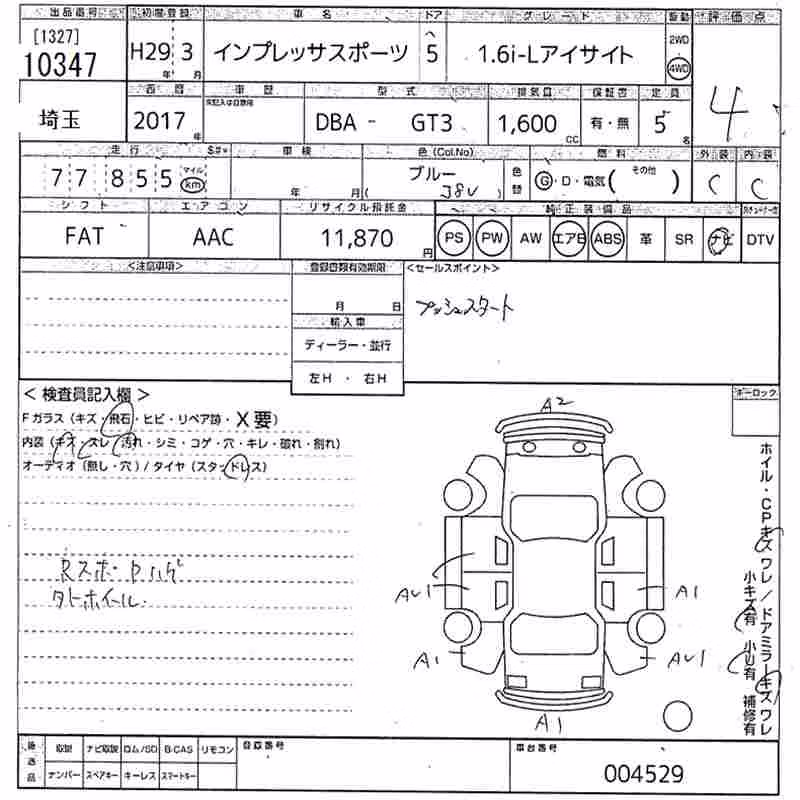 出品番号 初度登録 車名 ドア グレード 駆動 評価点
[1327]
10347 H29年 3月 インプレッサスポーツ 5 1.6i-Lアイサイト 2WD 4WD 4
西暦 車歴 型式 排気量 保証書 定員
埼玉 2017年 DBA - GT3 1,600cc 有・無 5名
走行 車検 色(Col.No) 燃料 外装 内装
77855 マイル km 年 月 ブルー (J8U) 色替 G・D・電気(その他) C C
シフト エアコン リサイクル預託金 純正装備品
FAT AAC 11,870円 PS PW AW エアB ABS 革 SR ナビ DTV
<注意事項> 登録書類有効期限 <セールスポイント>
月 日 プッシュスタート
輸入車
ディーラー・並行
左H ・ 右H
<検査員記入欄> ホーロック
Fガラス(キズ・飛石・ヒビ・リペア跡・X要)
内装(キズ・スレ・汚れ・シミ・コゲ・穴・キレ・破れ・割れ)
オーディオ(無し・穴)/タイヤ(スタッドレス)
A2
Rスポ・Pハゲ
タトホイール.
AU1 A1
A1 AU1
A1
ホイル・CPキズワレ/ドアミラーキズワレ
小キズ有 小U有 補修有
後送品 取説 ナビ取説 ロム/SD B-CAS リモコン 登録番号 車台番号
ナンバー スペアキー キーレス スマートキー 004529